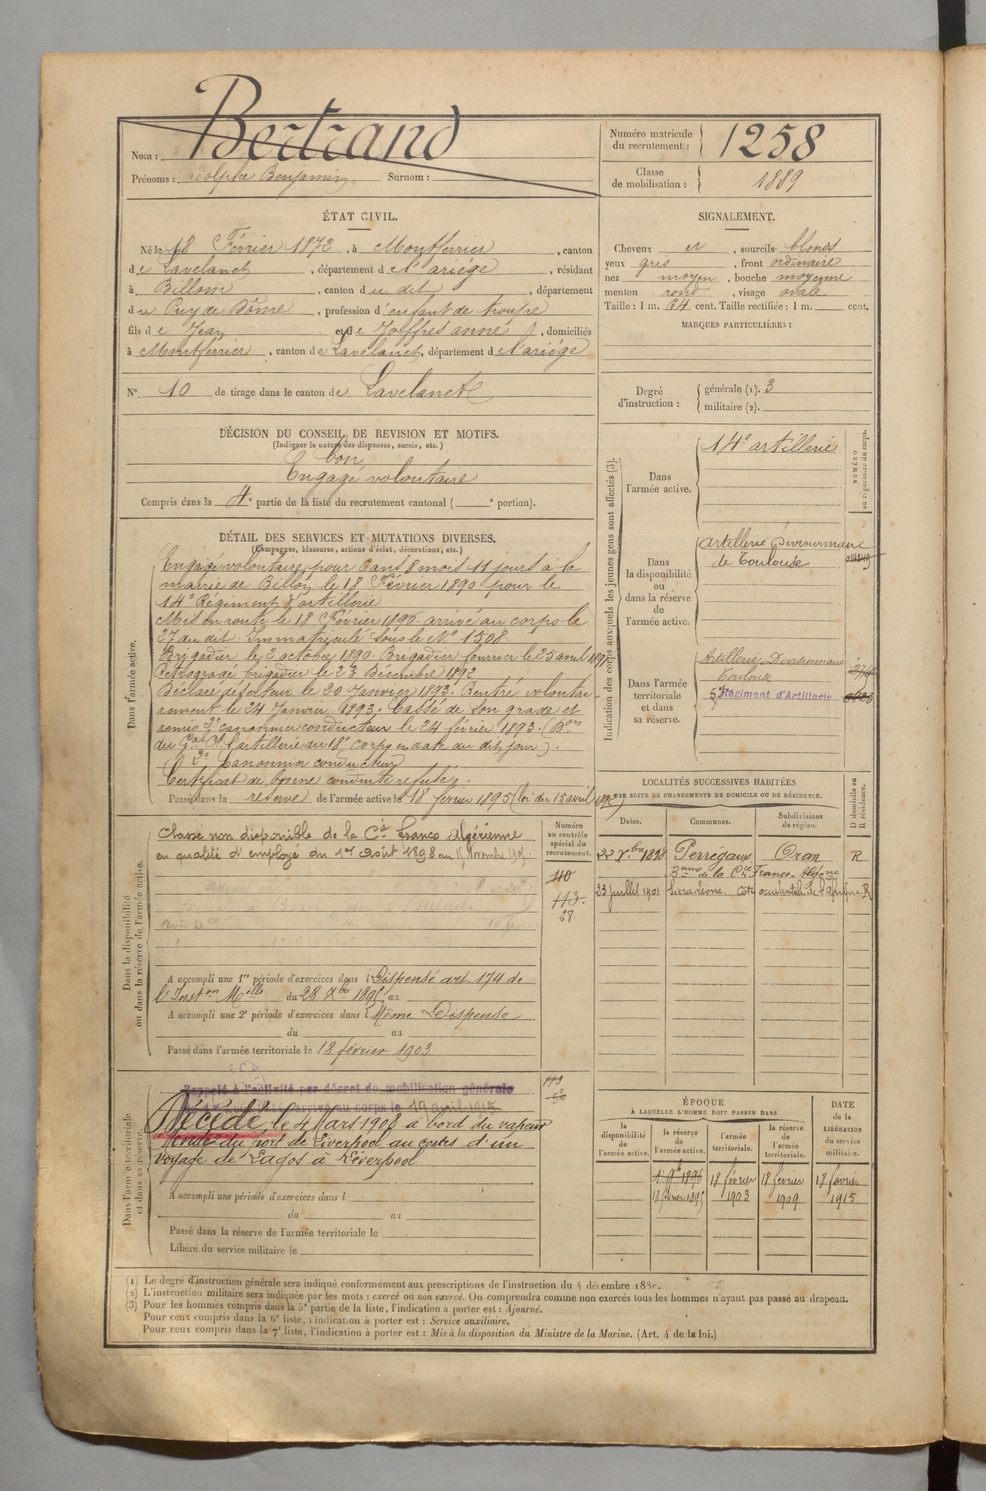 Nom : Bertrand
Prénoms : Adolphe Benjamin Surnom :
Numéro matricule du recrutement : 1258
Classe de mobilisation : 1889
ÉTAT CIVIL.
Né le 18 Février 1872, à Montferrier, canton
de Lavelanet, département de l'ariège, résidant
à Billom, canton du dit, département
du Puy de Dôme, profession d'enfant de troupe
fils de Jean et de Jouffres anne, domiciliés
à Montferrier, canton de Lavelanet, département de l'ariège
N° 10 de tirage dans le canton de Lavelanet
SIGNALEMENT.
Cheveux et, sourcils blonds
yeux gris, front ordinaire
nez moyen, bouche moyenne
menton rond, visage ovale
Taille : 1 m. 64 cent. Taille rectifiée : 1 m. cent.
MARQUES PARTICULIÈRES :
Degré d'instruction : générale (1). 3
militaire (2).
DÉCISION DU CONSEIL DE REVISION ET MOTIFS.
(Indiquer la nature des dispenses, sursis, etc.)
bon
Engagé volontaire
Compris dans la 4e partie de la liste du recrutement cantonal ( e portion).
DÉTAIL DES SERVICES ET MUTATIONS DIVERSES.
(Campagnes, blessures, actions d'éclat, décorations, etc.)
Dans l'armée active.
Engagé volontaire pour 5 ans 8 mois 11 jours à la
mairie de Billom le 18 Février 1890 pour le
14e Régiment d'artillerie
Mis en route le 18 Février 1890 arrivé au corps le
27 du dit. Immatriculé sous le N° 1508.
Brigadier le 2 octobre 1890. Brigadier fourrier le 25 avril 1891
Rétrogradé brigadier le 23 Décembre 1892
Déclaré déserteur le 20 Janvier 1893. Rentré volontai-
rement le 24 Janvier 1893. Cassé de son grade et
remis 2e canonnier conducteur le 24 février 1893. (Don
du Gal Ct l'artillerie du 18e corps en date du dit jour).
2e Canonnier conducteur
Certificat de bonne conduite refusé.
Passé dans la réserve de l'armée active le 18 février 1895 (loi du 15 avril 1892)
Indication des corps auxquels les jeunes gens sont affectés (3).
NUMÉRO au répertoire du corps.
Dans l'armée active.
14e artillerie
Dans la disponibilité ou dans la réserve de l'armée active.
Artillerie Divisionnaire
de Toulouse
Dans l'armée territoriale et dans sa réserve.
Artillerie Divisionnaire
Toulouse
5e Régiment d'Artillerie
LOCALITÉS SUCCESSIVES HABITÉES
PAR SUITE DE CHANGEMENTS DE DOMICILE OU DE RÉSIDENCE.
Dates. Communes. Subdivisions de région. D domicile ou R résidence.
22 7bre 1898 Perrégaux Oran R
Baux de la Cie Franco-Algérne
23 juillet 1901 Sierra-Léone, Côte occidentale de l'Afrique R
Dans la disponibilité ou dans la réserve de l'armée active.
Numéro au contrôle spécial du recrutement.
Classé non disponible de la Cie Franco Algérienne
en qualité d'employé du 1er Août 1898 au 15 Novembre 1901.
110
113
28
A accompli une 1re période d'exercices dans l Dispensé art 174 de
l'Inston Melle du 28 Xbre 1895 au
A accompli une 2e période d'exercices dans l Même Dispense
du au
Passé dans l'armée territoriale le 18 février 1903
Dans l'armée territoriale et dans sa réserve.
Rappelé à l'activité par décret de mobilisation générale
arrivé au corps le 19 avril 1915
Décédé le 4 Mars 1908 à bord du vapeur
du port de Liverpool au cours d'un
voyage de Lagos à Liverpool
A accompli une période d'exercices dans l
du au
Passé dans la réserve de l'armée territoriale le
Libéré du service militaire le
ÉPOQUE
À LAQUELLE L'HOMME DOIT PASSER DANS
la disponibilité de l'armée active.
la réserve de l'armée active.
l'armée territoriale.
la réserve de l'armée territoriale.
DATE de la LIBÉRATION du service militaire.
1er 9bre 1896 18 février 18 février 18 février
18 février 1895 1903 1909 1915
(1) Le degré d'instruction générale sera indiqué conformément aux prescriptions de l'instruction du 4 décembre 1889.
(2) L'instruction militaire sera indiquée par les mots : exercé ou non exercé. On comprendra comme non exercés tous les hommes n'ayant pas passé au drapeau.
(3) Pour les hommes compris dans la 5e partie de la liste, l'indication à porter est : Ajourné.
Pour ceux compris dans la 6e liste, l'indication à porter est : Service auxiliaire.
Pour ceux compris dans la 7e liste, l'indication à porter est : Mis à la disposition du Ministre de la Marine. (Art. 4 de la loi.)